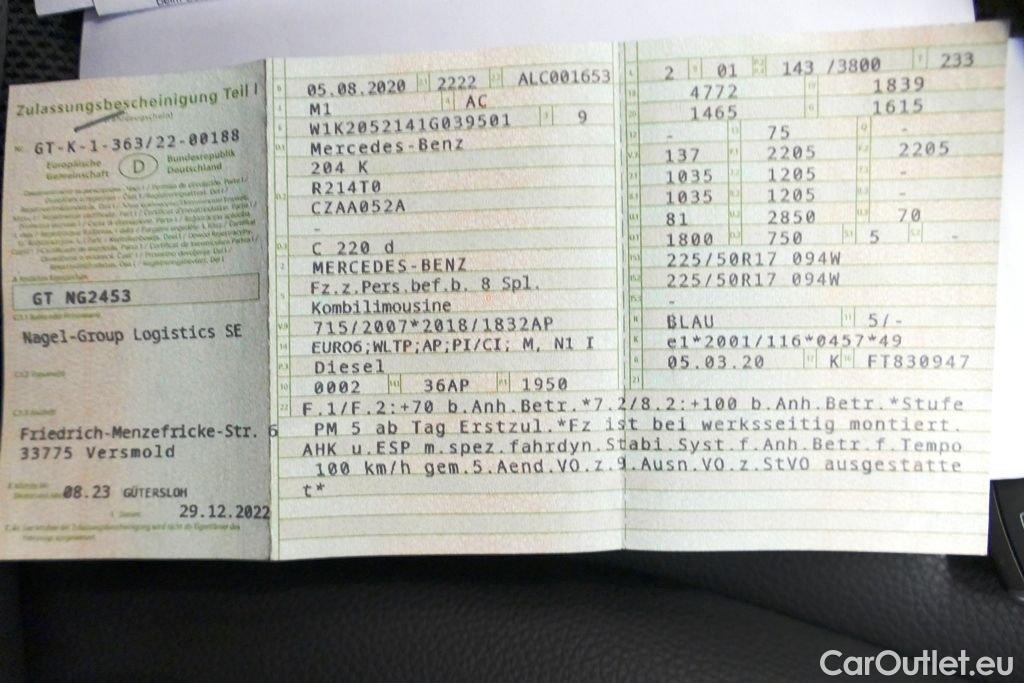 Zulassungsbescheinigung Teil I
Nr. GT-K-1-363/22-00188
Europäische Gemeinschaft D Bundesrepublik Deutschland
GT NG2453
Nagel-Group Logistics SE
Friedrich-Menzefricke-Str. 6
33775 Versmold
08.23 GÜTERSLOH
29.12.2022
05.08.2020 2222 ALC001653
M1 AC
W1K2052141G039501 9
Mercedes-Benz
204 K
R214T0
CZAA052A
-
C 220 d
MERCEDES-BENZ
Fz.z.Pers.bef.b. 8 Spl.
Kombilimousine
715/2007*2018/1832AP
EURO6;WLTP;AP;PI/CI; M, N1 I
Diesel
0002 36AP 1950
2 01 143 /3800 233
4772 1839
1465 1615
- 75 -
137 2205 2205
1035 1205 -
1035 1205 -
81 2850 70
1800 750 5 -
225/50R17 094W
225/50R17 094W
-
BLAU 5/-
e1*2001/116*0457*49
05.03.20 K FT830947
F.1/F.2:+70 b.Anh.Betr.*7.2/8.2:+100 b.Anh.Betr.*Stufe
PM 5 ab Tag Erstzul.*Fz ist bei werksseitig montiert.
AHK u.ESP m.spez.fahrdyn.Stabi.Syst.f.Anh.Betr.f.Tempo
100 km/h gem.5.Aend.VO.z.9.Ausn.VO.z.StVO ausgestatte
t*
CarOutlet.eu